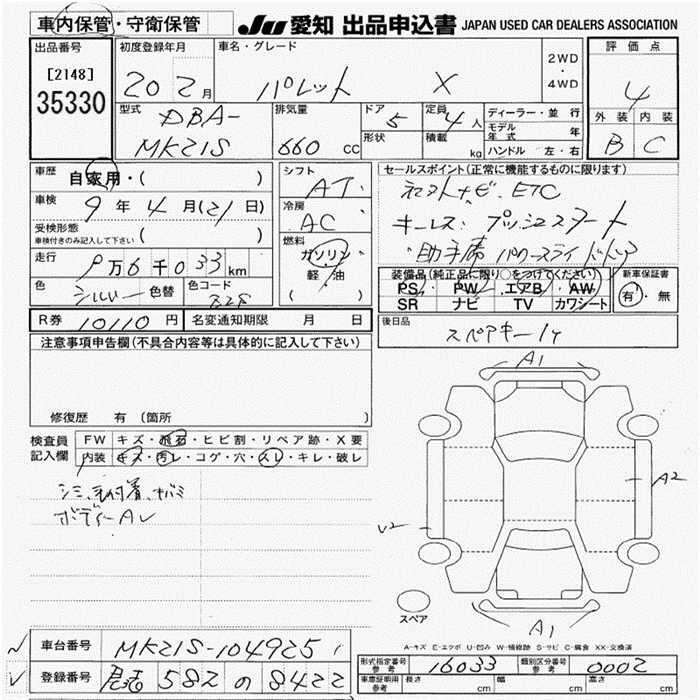 車内保管・守衛保管 JU 愛知 出品申込書 JAPAN USED CAR DEALERS ASSOCIATION
出品番号 初度登録年月 車名・グレード 2WD・4WD 評価点
[2148] 35330 20 2月 パレット X 4
型式 DBA-MK21S 排気量 660 cc ドア 5 定員 4人 ディーラー・並行
形状 積載 kg モデル年式 年
ハンドル 左・右
外装 内装
B C
車歴 自家用・( )
車検 9年4月(21日)
受検形態 車検付きのみ記入して下さい ( )
走行 9万6千033km
色 シルバー 色替 色コード
シフト AT
冷房 AC
燃料 ガソリン 軽油 ( )
セールスポイント(正常に機能するものに限ります)
ETC
キーレス プッシュスタート
助手席 パワースライドドア
装備品(純正品に限り○をつけてください) 新車保証書
PS PW エアB AW 有・無
SR ナビ TV カワシート
R券 10110円 名変通知期限 月 日
後日品 スペアキー1ケ
注意事項申告欄(不具合内容等は具体的に記入して下さい)
修復歴 有(箇所 )
検査員記入欄 FW キズ・飛石・ヒビ割・リペア跡・X要
内装 キズ・汚レ・コゲ・穴・スレ・キレ・破レ
ボディーAU
A1
A2
U2
A1
スペア
A-キズ E-エクボ U-凹み W-補修跡 S-サビ C-腐食 XX-交換済
車台番号 MK21S-104925
登録番号 582 の 8422
形式指定番号 参考 16033 類別区分番号 参考 0002
車庫証明用 参考 長さ cm 幅 cm 高さ cm